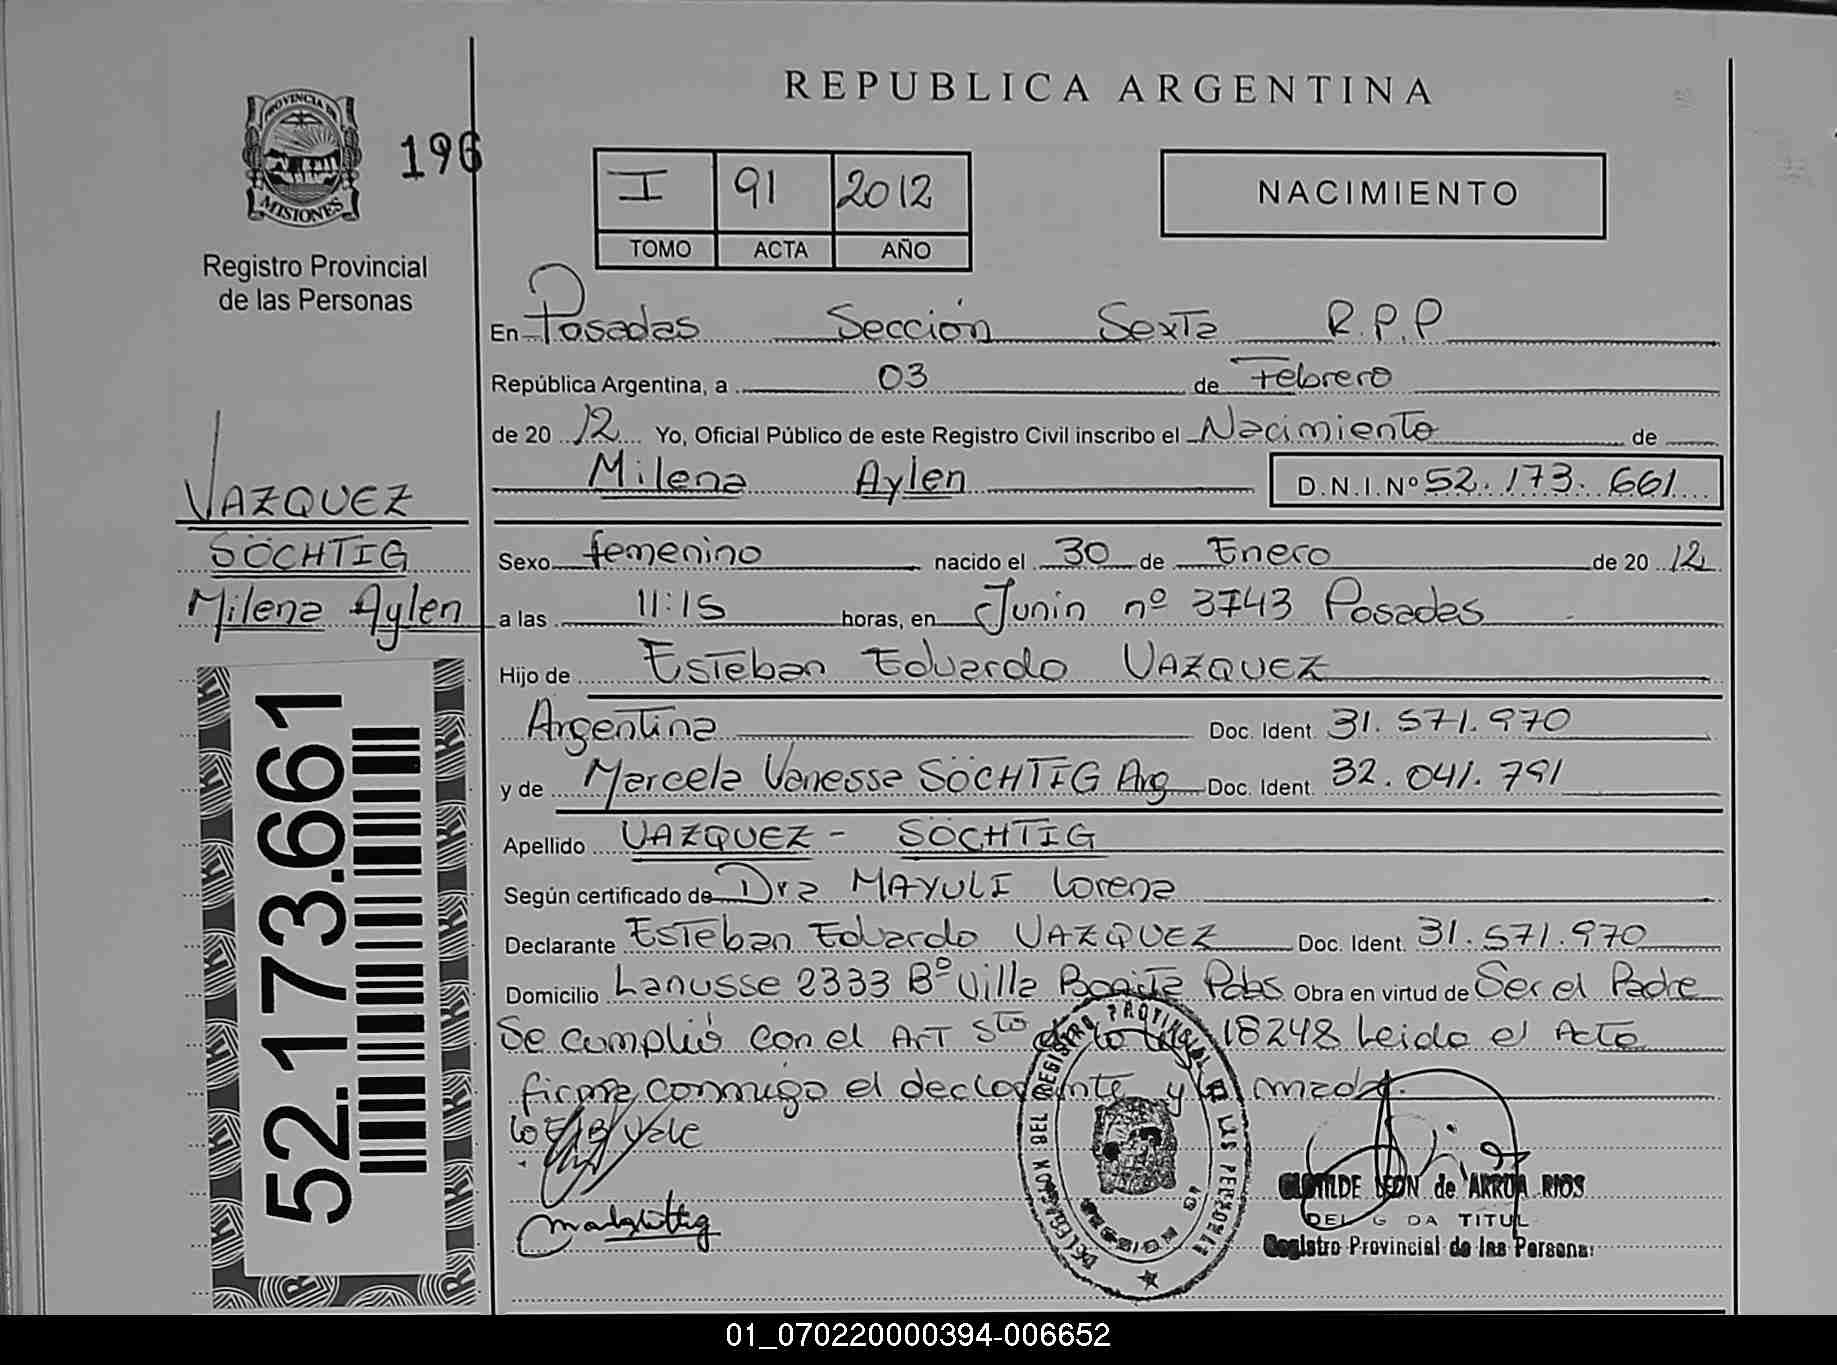 REPUBLICA ARGENTINA
PROVINCIA DE
MISIONES
196
Registro Provincial
de las Personas
I 91 2012
TOMO ACTA AÑO
NACIMIENTO
En Posadas Sección Sexta R.P.P
República Argentina, a 03 de Febrero
de 20 12 Yo, Oficial Público de este Registro Civil inscribo el Nacimiento de
Milena Aylen D.N.I.Nº 52.173.661
VAZQUEZ
SÖCHTIG
Milena Aylen
Sexo femenino nacido el 30 de Enero de 20 12
a las 11:15 horas, en Junin nº 3743 Posadas
Hijo de Esteban Eduardo VAZQUEZ
Argentina Doc. Ident. 31.571.970
y de Marcela Vanessa SÖCHTIG Arg Doc. Ident. 32.041.791
Apellido VAZQUEZ - SÖCHTIG
Según certificado de Dra MAYULI Lorena
Declarante Esteban Eduardo VAZQUEZ Doc. Ident. 31.571.970
Domicilio Lanusse 2333 Bº Villa Bonita Pdas Obra en virtud de Ser el Padre
Se cumplió con el Art 5to de la ley 18248 Leida el Acta
firma conmigo el declarante y la madre.
52.173.661
DELEGACION DEL REGISTRO PROVINCIAL DE LAS PERSONAS
CLOTILDE LEON de ARRUA RIOS
DELEGADA TITUL
Registro Provincial de las Personas
01_070220000394-006652